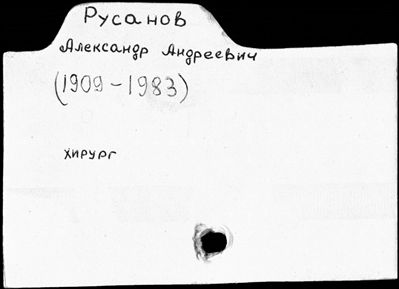 Русанов
Александр Андреевич
(1909-1983)
хирург